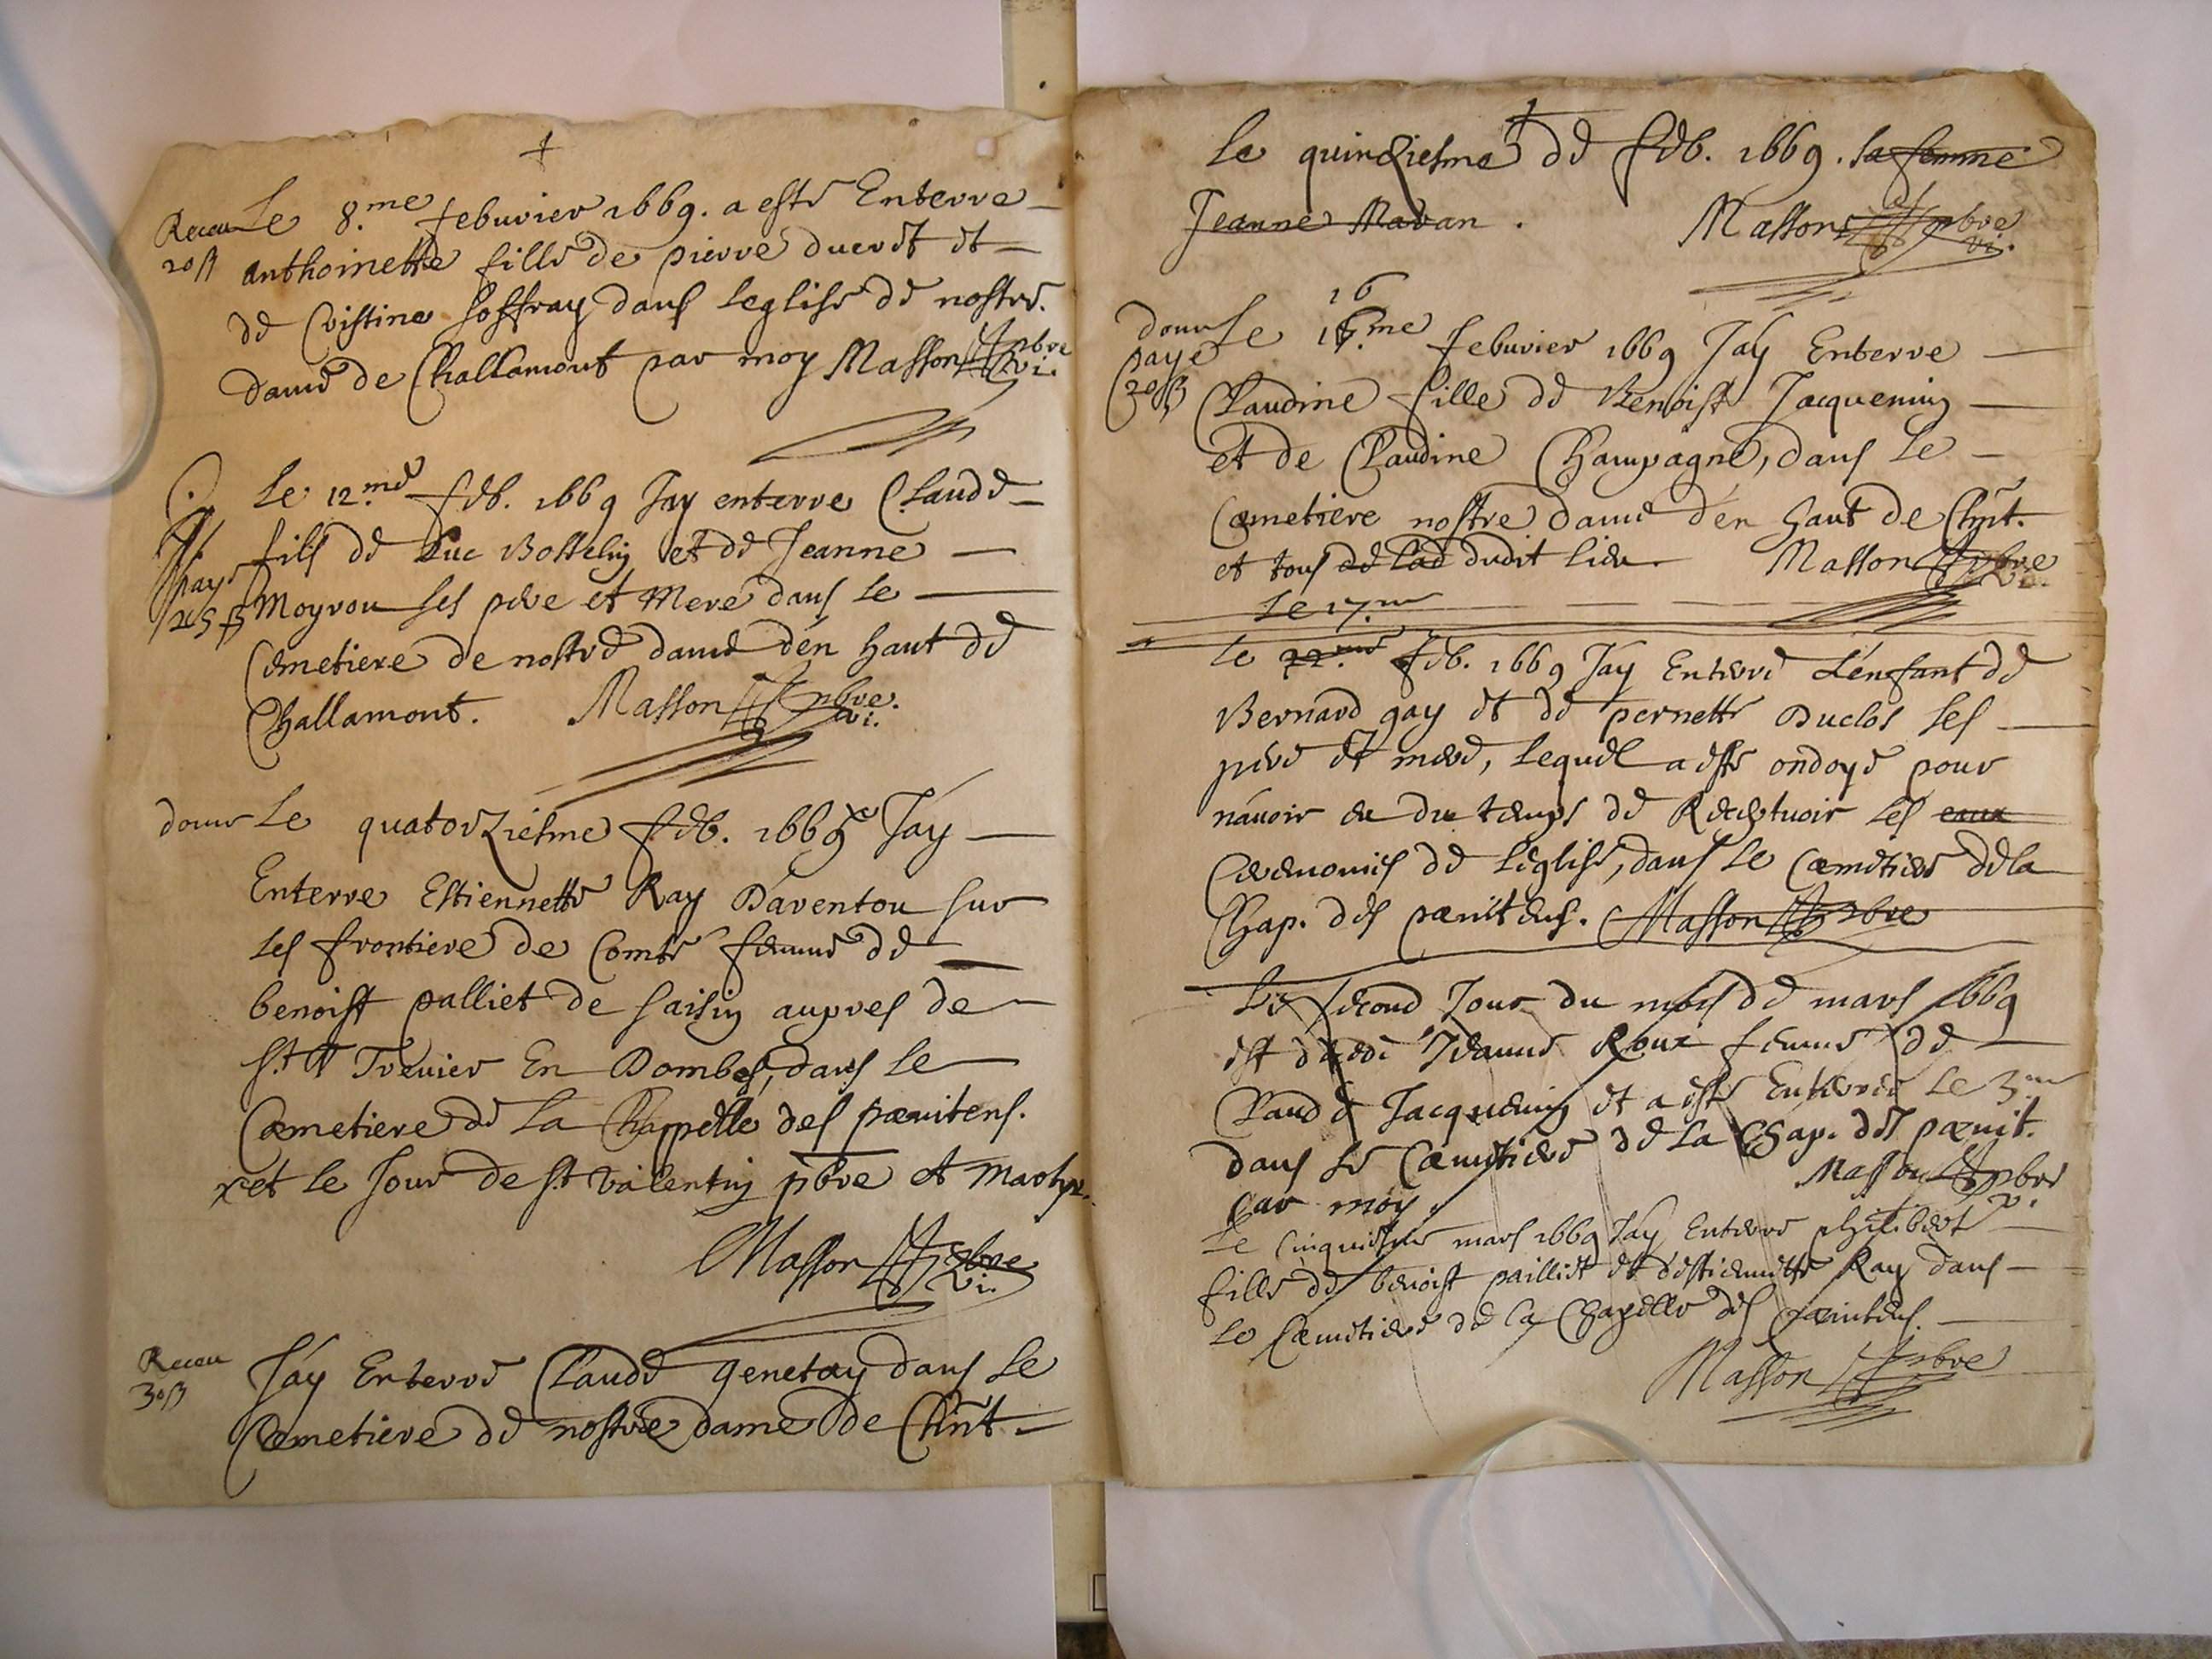 Receu Le 8.me febuvier 1669. a esté Enterre
20 ß anthoinette fille de pierre ducret et
de Cristine soffray dans leglise de nostre
dame de Challamont par moy Masson pbre vi.
Le 12.me feb. 1669 Jay enterre Claude
fils de Luc Bosselin et de Jeanne
paye Moyrou ses pere et Mere dans le
25 ß
Cemetiere de nostre dame d'en haut de
Challamont. Masson pbre. vi.
donne Le quatorziesme feb. 1669 x Jay
Enterre Estiennette Ray D'aventou sur
les frontiere de Comté femme de
benoist palliet de saisin aupres de
St Trevier En Dombes, dans le
Cœmetiere de La Chappelle des pœnitens.
x et le Jour de St valentin pbre et Martyr.
Masson pbre vi.
Receu Jáy Enterré Claude genetay dans le
30 ß Cœmetiere de nostre dame de Chnt
Le quinziesme de feb. 1669. la femme
Jeanne Mavan. Masson pbre vi.
16
donne Le 15.me febuvier 1669 Jaÿ Enterre
paye
20 ß Claudine fille de Benoist Jacquemin
et de Claudine Champagne, dans le
Cœmetiere nostre dame d'en haut de Chnt.
et tous de lad dudit lieu. Masson pbre vi.
Le 17.me
Le 22.me feb. 1669 Jáy Enterré L'enfant de
Bernard gay et de pernette Duclos ses
pere et mere, lequel a esté ondoyé pour
n'auoir eu du temps de Recevoir les eaux
Ceremonies de l'eglise, dans le Cœmetiere de la
Chap. des pœnitens. Masson pbre
Le second Jour du mois de mars 1669
est décédé Jeanne Roux femme de
Claude Jacquemin et a esté Enterrée le 3.me
dans le Cœmetiere de la Chap. des pœnit.
par moy. Masson pbre v.
Le Cinquiesme mars 1669 Jay Enterré philiberte
fille de benoist pailliet et d'estiennette Ray dans
le Cœmetiere de la Chapelle des pœnitens.
Masson pbre